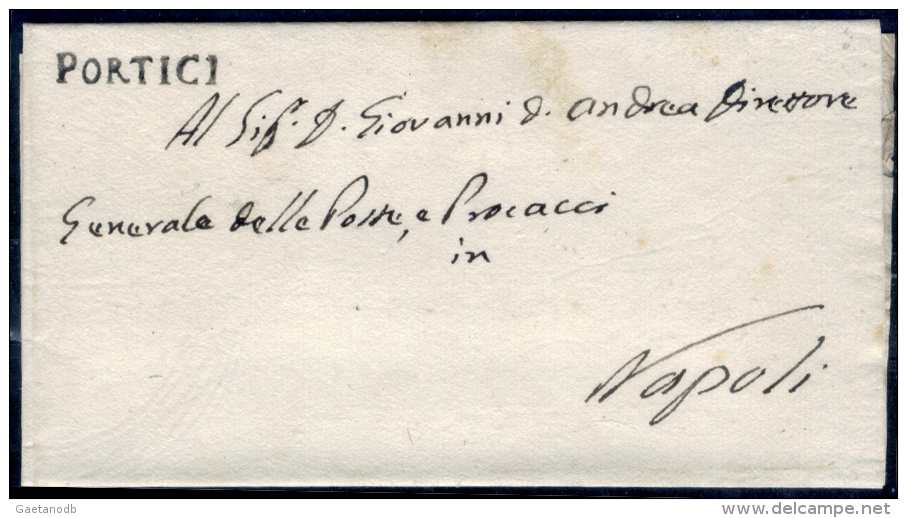 PORTICI
Al Sig.r D. Giovanni d. Andrea Direttore
Generale delle Poste, e Procacci
in
Napoli
Gaetanodb
delcampe.net